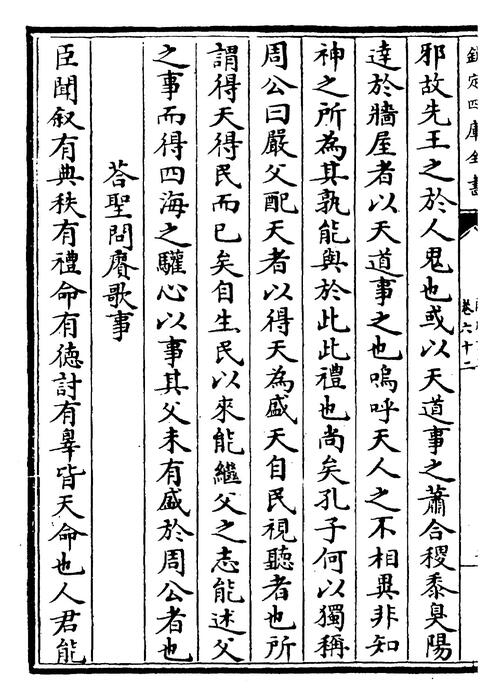 欽定四庫全書
卷六十二
邪故先王之於人鬼也或以天道事之蕭合稷黍臭陽
達於牆屋者以天道事之也嗚呼天人之不相異非知
神之所為其孰能與於此此禮也尚矣孔子何以獨稱
周公曰嚴父配天者以得天為盛天自民視聽者也所
謂得天得民而已矣自生民以來能繼父之志能述父
之事而得四海之驩心以事其父未有盛於周公者也
荅聖問賡歌事
臣聞叙有典秩有禮命有徳討有辠皆天命也人君能